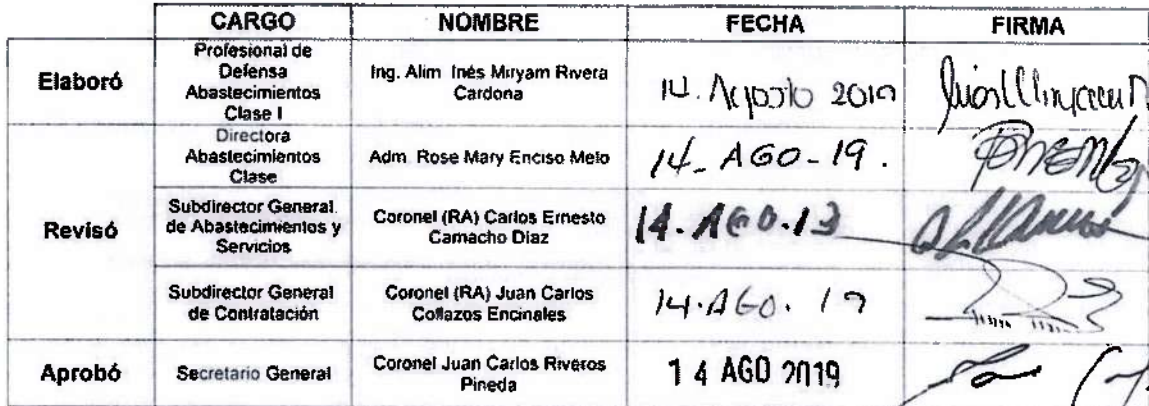 CARGO NOMBRE FECHA FIRMA
Elaboró
Profesional de
Defensa
Abastecimientos
Clase I
Ing. Alim Inés Miryam Rivera
Cardona
14. Agosto 2019
Revisó
Directora
Abastecimientos
Clase
Adm. Rose Mary Enciso Melo
14_ AGO-19.
Subdirector General
de Abastecimientos y
Servicios
Coronel (RA) Carlos Ernesto
Camacho Diaz
14.AGO.19
Subdirector General
de Contratación
Coronel (RA) Juan Carlos
Collazos Encinales
14.AGO. 19
Aprobó
Secretario General
Coronel Juan Carlos Riveros
Pineda
14 AGO 2019